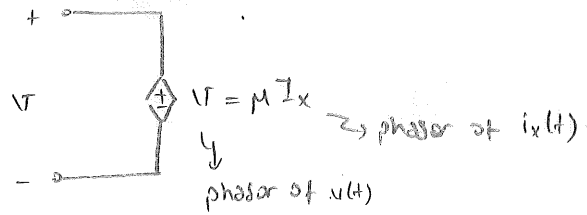 +
V
+
-
V = μ I x
→ phasor of ix(t)
-
↓
phasor of v(t)